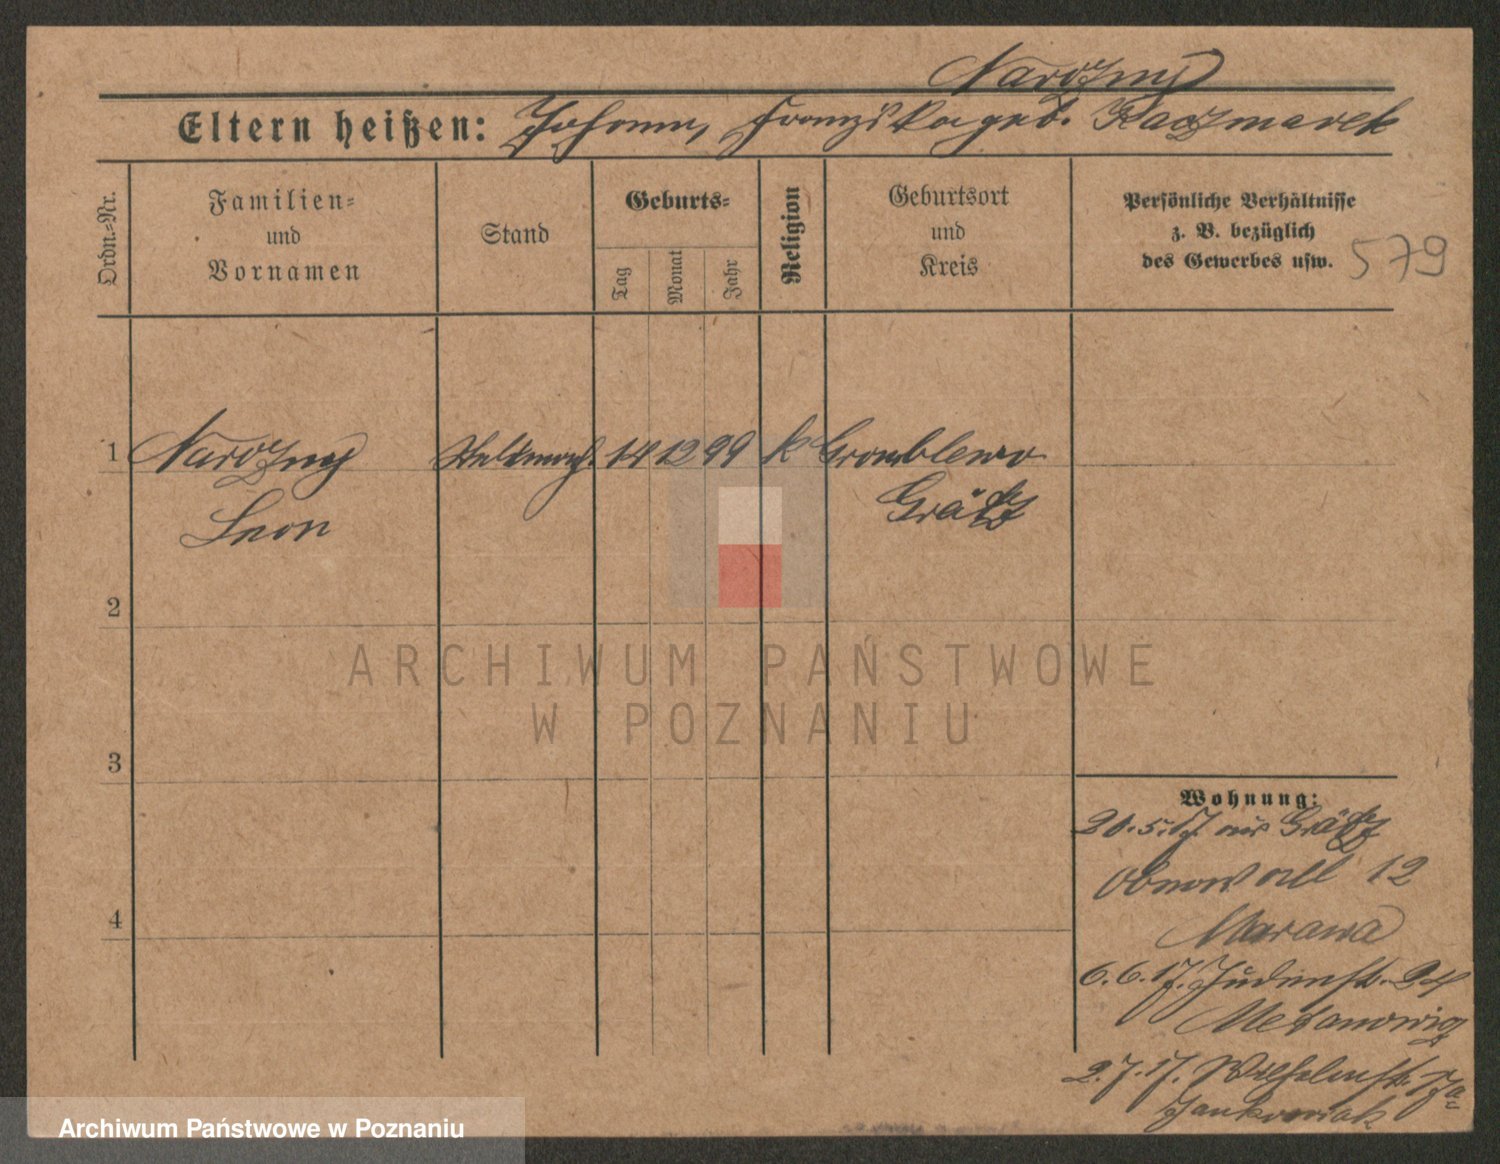 Narożny
Eltern heißen: Johann, Franziska geb. Kaczmarek
Ordn.-Nr.
Familien-
und
Vornamen
Stand
Geburts-
Tag
Monat
Jahr
Religion
Geburtsort
und
Kreis
Persönliche Verhältnisse
z. B. bezüglich
des Gewerbes usw.
579
1 Narożny 14 12 99 k Gromblewo
Leon Grätz
2
3
4
Wohnung:
20.5.17. aus Grätz
12
Marawa
6.6.17. Judenstr. 24
2.7.17. Wilhelmstr. 7a
Jankowiak
ARCHIWUM PAŃSTWOWE
W POZNANIU
Archiwum Państwowe w Poznaniu